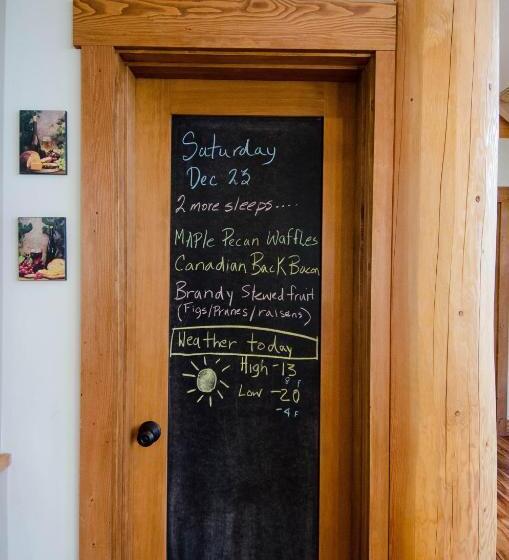 Saturday
Dec 23
2 more sleeps....
Maple Pecan Waffles
Canadian Back Bacon
Brandy Stewed fruit
(Figs/Prunes/raisens)
Weather today
High -13
8 F
Low -20
-4 F